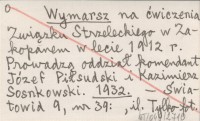 Wymarsz na ćwiczenia
Związku Strzeleckiego w Za-
kopanem w lecie 1912 r.
Prowadzą oddział komendant
Józef Piłsudski i Kazimierz
Sosnkowski. 1932. - Świa-
towid 9, nr 39: , il. Tylko fot.